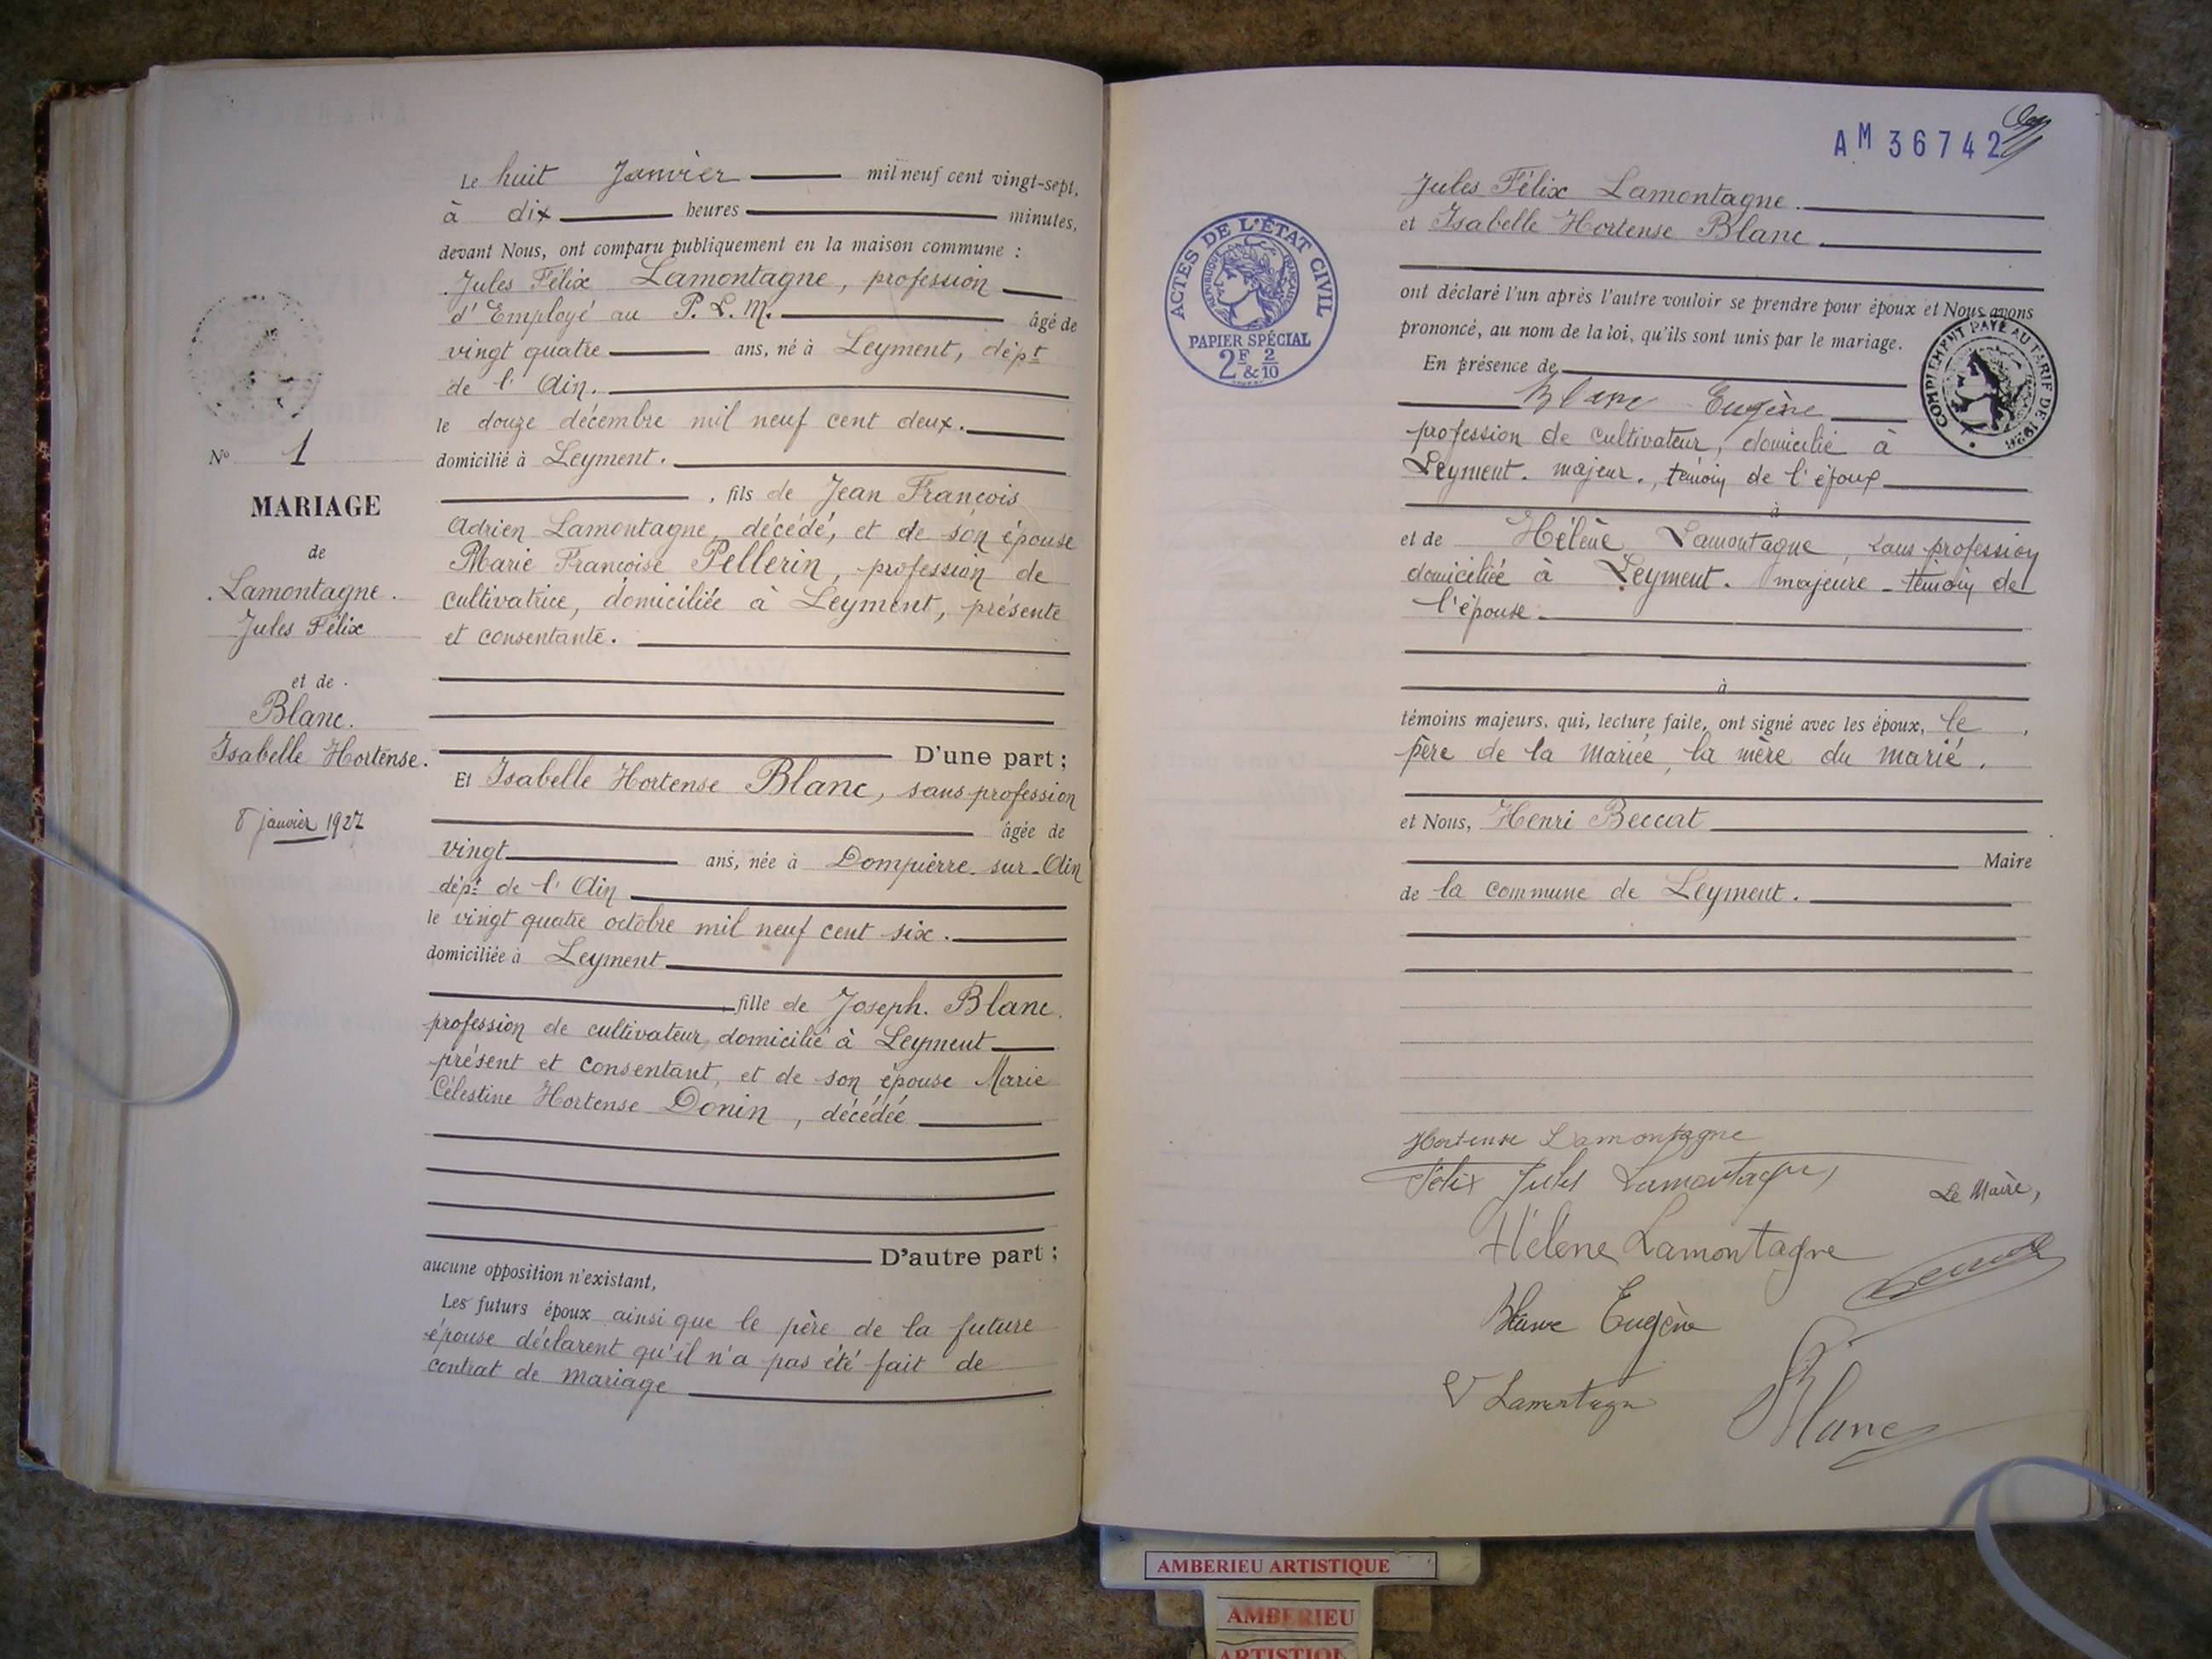 Le huit Janvier mil neuf cent vingt-sept,
à dix heures minutes,
devant Nous, ont comparu publiquement en la maison commune :
Jules Félix Lamontagne, profession
d'Employé au P. L. M. âgé de
vingt quatre ans, né à Leyment, dépt
de l'Ain.
le douze décembre mil neuf cent deux.
domicilié à Leyment.
, fils de Jean François
Adrien Lamontagne, décédé, et de son épouse
Marie Françoise Pellerin, profession de
cultivatrice, domiciliée à Leyment, présente
et consentante.
D'une part ;
Et Isabelle Hortense Blanc, sans profession
âgée de
vingt ans, née à Dompierre-sur-Ain
dépt de l'Ain
le vingt quatre octobre mil neuf cent six.
domiciliée à Leyment
, fille de Joseph. Blanc.
profession de cultivateur, domicilié à Leyment
présent et consentant, et de son épouse Marie
Célestine Hortense Donin, décédée
D'autre part ;
aucune opposition n'existant,
Les futurs époux ainsi que le père de la future
épouse déclarent qu'il n'a pas été fait de
contrat de mariage
No 1
MARIAGE
de
Lamontagne.
Jules Félix
et de
Blanc.
Isabelle Hortense.
8 janvier 1927
AM 36742
Jules Félix Lamontagne.
et Isabelle Hortense Blanc
ACTES DE L'ÉTAT CIVIL
RÉPUBLIQUE FRANÇAISE
PAPIER SPÉCIAL
2F & 2/10
ont déclaré l'un après l'autre vouloir se prendre pour époux et Nous avons
prononcé, au nom de la loi, qu'ils sont unis par le mariage.
COMPLÉMENT PAYÉ AU TARIF DE 1926
En présence de
Blanc Eugène
profession de cultivateur, domicilié à
Leyment. majeur., témoin de l'époux
à
et de Hélène Lamontagne, sans profession
domiciliée à Leyment. majeure - témoin de
l'épouse.
à
témoins majeurs, qui, lecture faite, ont signé avec les époux, le
père de la mariée, la mère du marié.
et Nous, Henri Beccat
Maire
de la commune de Leyment.
Hortense Lamontagne
Félix Jules Lamontagne
Le Maire,
Hélène Lamontagne
Blanc Eugène
V Lamontagne
Blanc
AMBERIEU ARTISTIQUE
AMBERIEU
ARTISTIQ